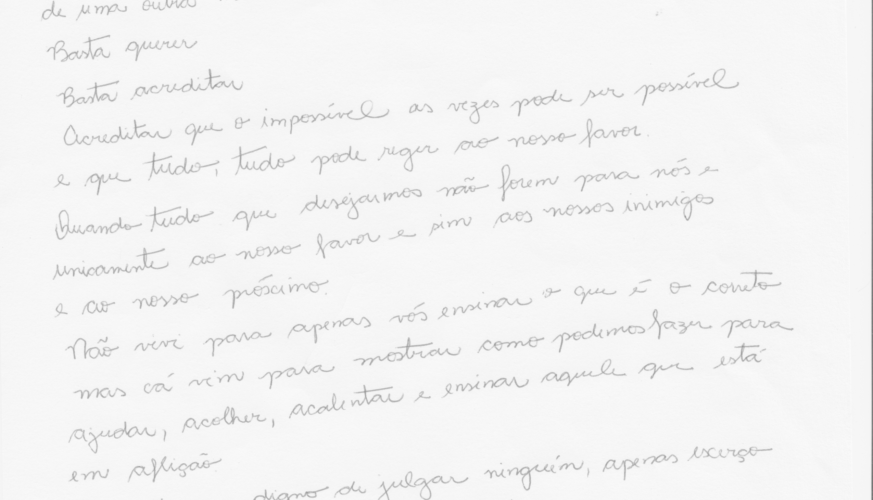 de uma outra
Basta querer
Basta acreditar
Acreditar que o impossível as vezes pode ser possível
e que tudo, tudo pode reger ao nosso favor.
Quando tudo que desejarmos não forem para nós e
unicamente ao nosso favor e sim aos nossos inimigos
e ao nosso próscimo.
Não vivi para apenas vós ensinar o que é o correto
mas cá vim para mostrar como podemos fazer para
ajudar, acolher, acalentar e ensinar aquele que está
em aflição
digno de julgar ninguém, apenas